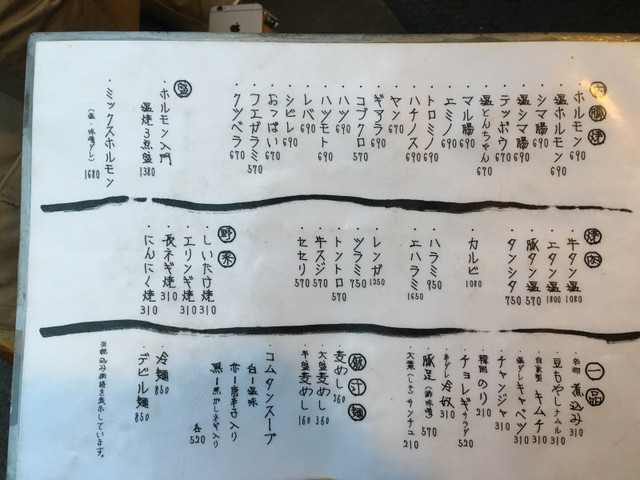 内臓焼
・ホルモン 690
・塩ホルモン 690
・シマ腸 690
・塩シマ腸 690
・テッポウ 670
・塩とんちゃん 670
・マル腸 690
・エミノ 690
・トロミノ 690
・ハチノス 690
・ヤン 670
・ギアラ 690
・コブクロ 570
・ハツ 690
・ハツモト 690
・レバ 690
・シビレ 690
・おっぱい 670
・フエガラミ 570
・クツベラ 670
盛
・ホルモン入門
塩焼3点盛 1380
・ミックスホルモン
(塩・味噌ダレ) 1680
焼肉
・牛タン塩 1080
・エタン塩 1800
・豚タン塩 570
・タンシタ 750
・カルビ 1080
・ハラミ 950
・エハラミ 1650
・レンガ 1250
・ツラミ 750
・トントロ 570
・牛スジ 570
・セセリ 570
野菜
・しいたけ焼 310
・エリンギ焼 310
・長ネギ焼 310
・にんにく焼 310
一品
・名物 煮込み 310
・豆もやしナムル 310
・自家製 キムチ 310
・塩ダレキャベツ 310
・チャンジャ 310
・韓国のり 210
・チョレギサラダ 520
・冷奴 310
・豚足 570
・大葉(しそ)サンチュ 210
飯汁麺
・麦めし 260
・大盛麦めし 360
・半盛麦めし 160
・コムタンスープ
白ー塩味
赤ー唐辛子入り
黒ー焦がしネギ入り
各 520
・冷麺 850
・デビル麺 850
※税込み価格を表示しています。